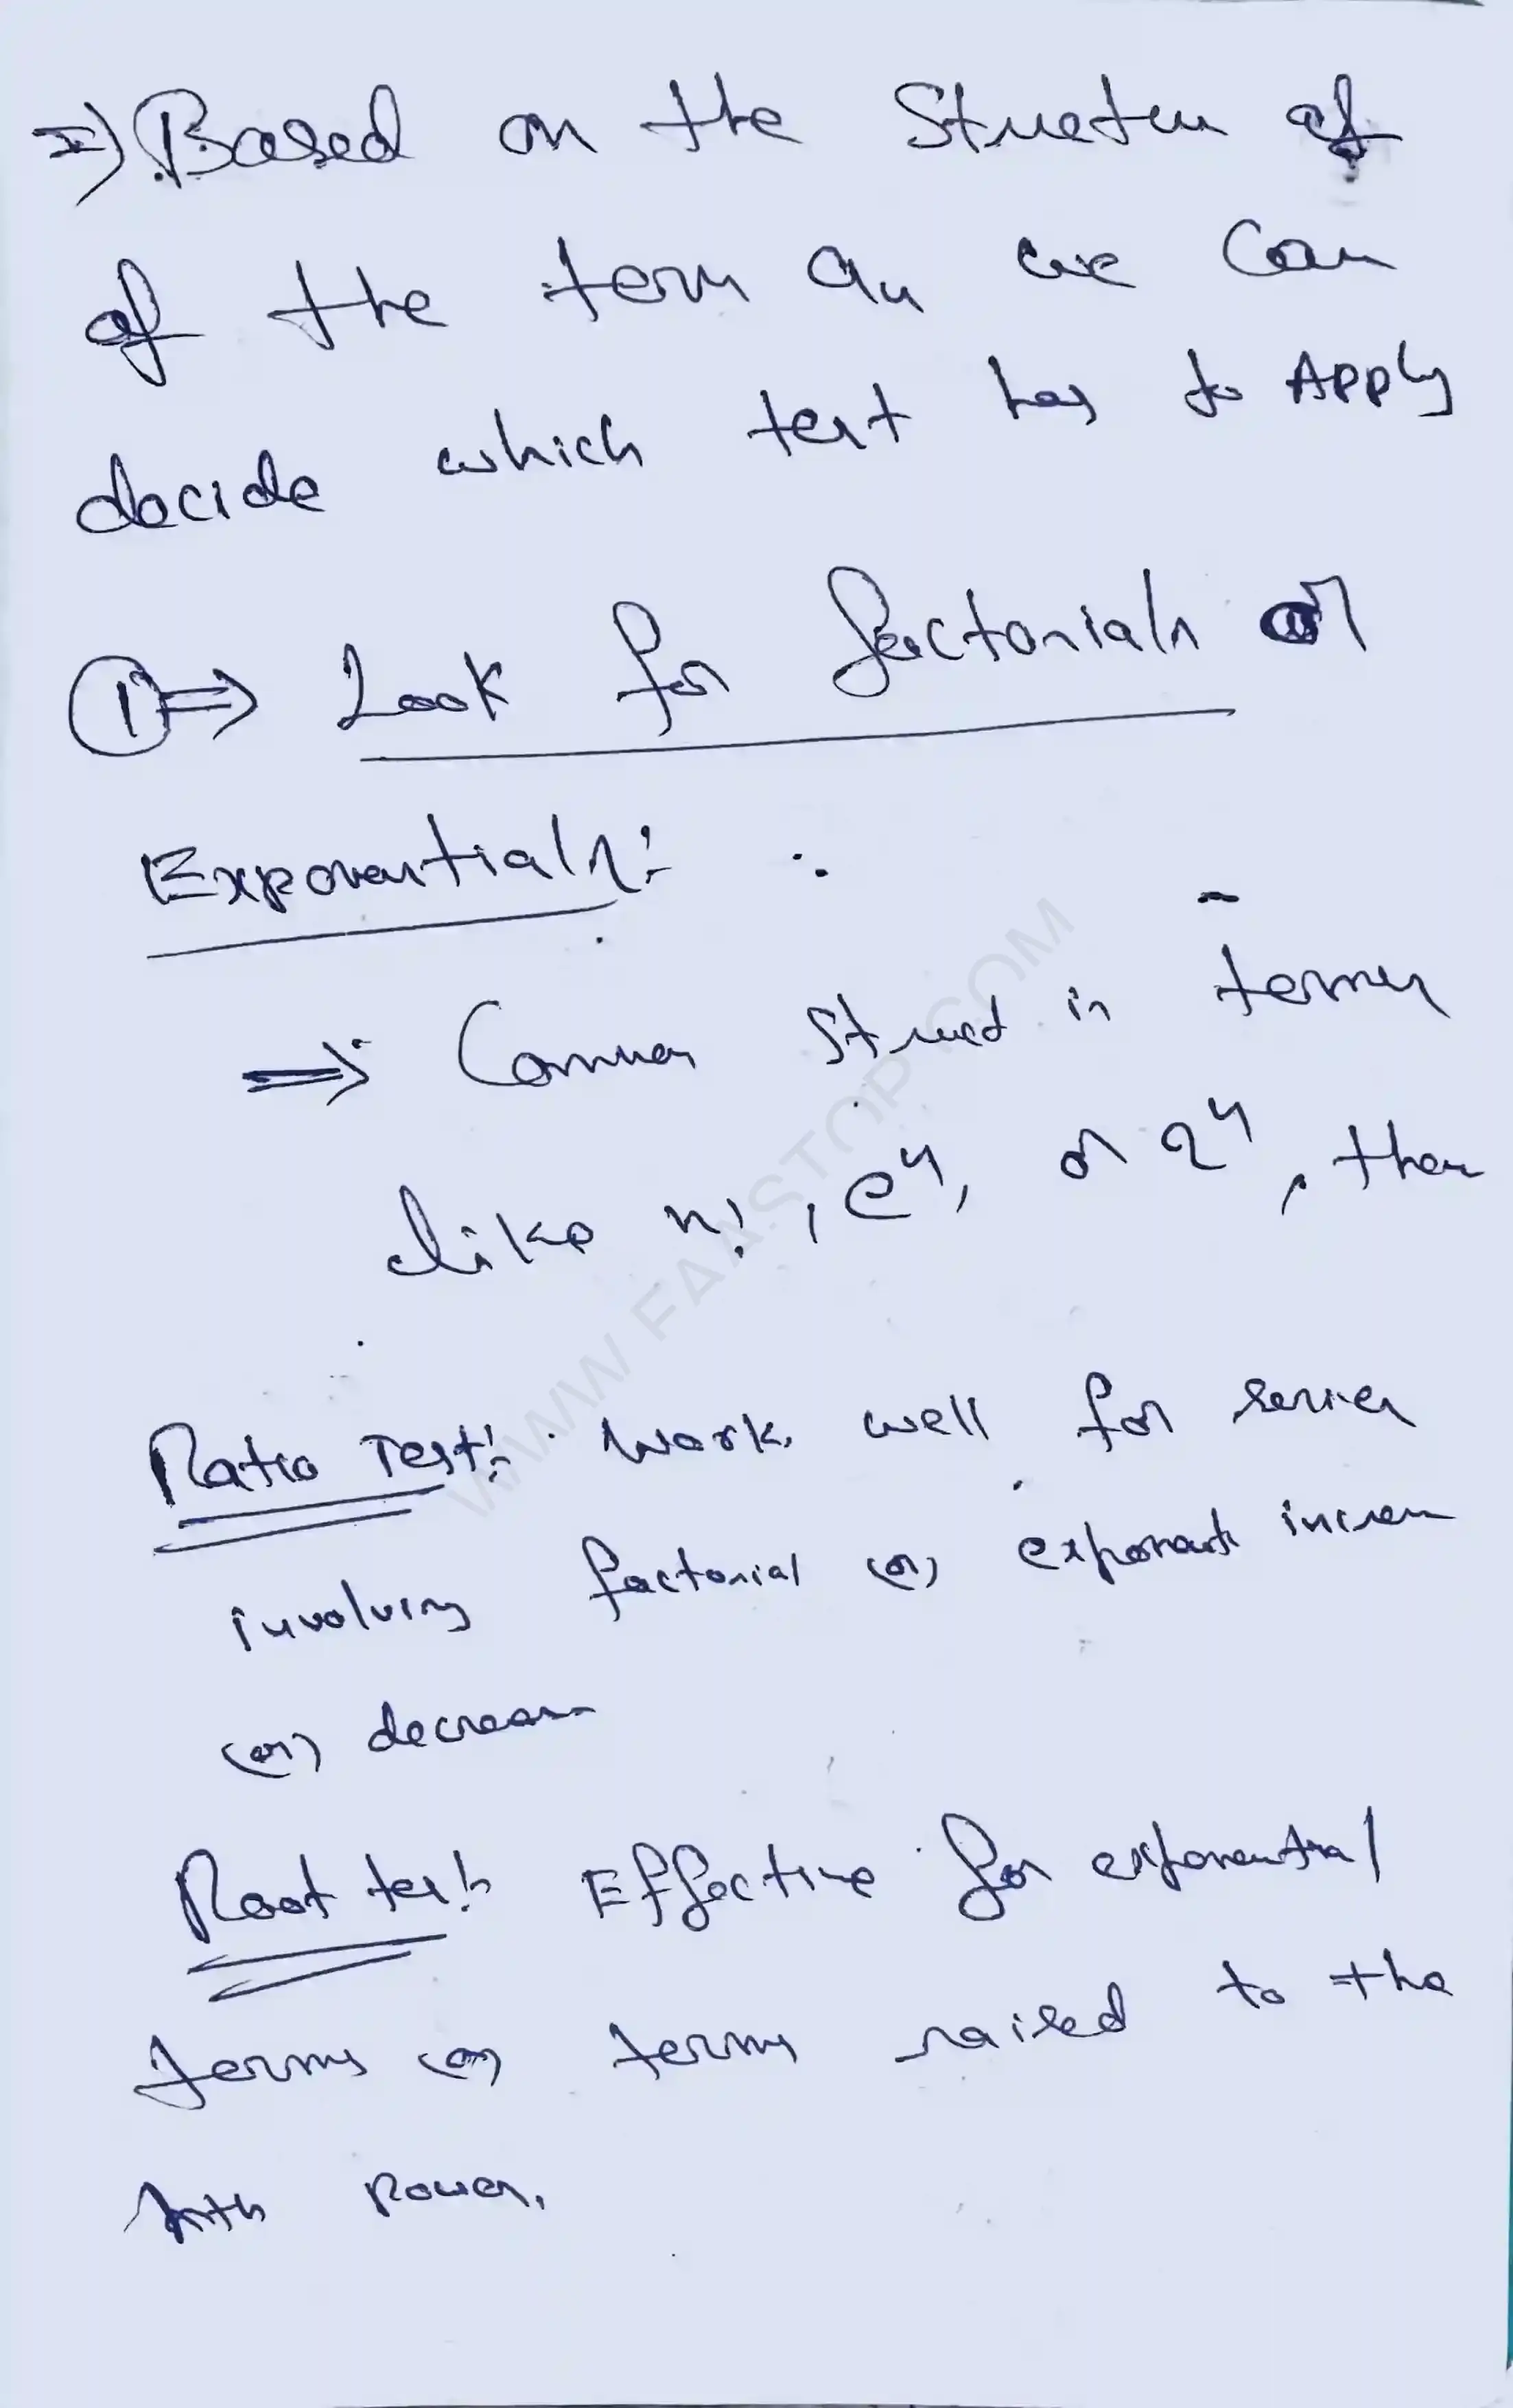 ⇒ Based on the Structu of
of the term an we can
decide which test has to Apply
① ⇒ Look for factorials or
Exponentials:-
⇒ Common struct in terms
like n!, e^n, or 2^n, then
Ratio Test:- Work well for series
involving factorial (or) exponent increa
(or) decrease
Root test Effective for exponential
terms (or) terms raised to the
nth Power.
WWW.FAASTOP.COM